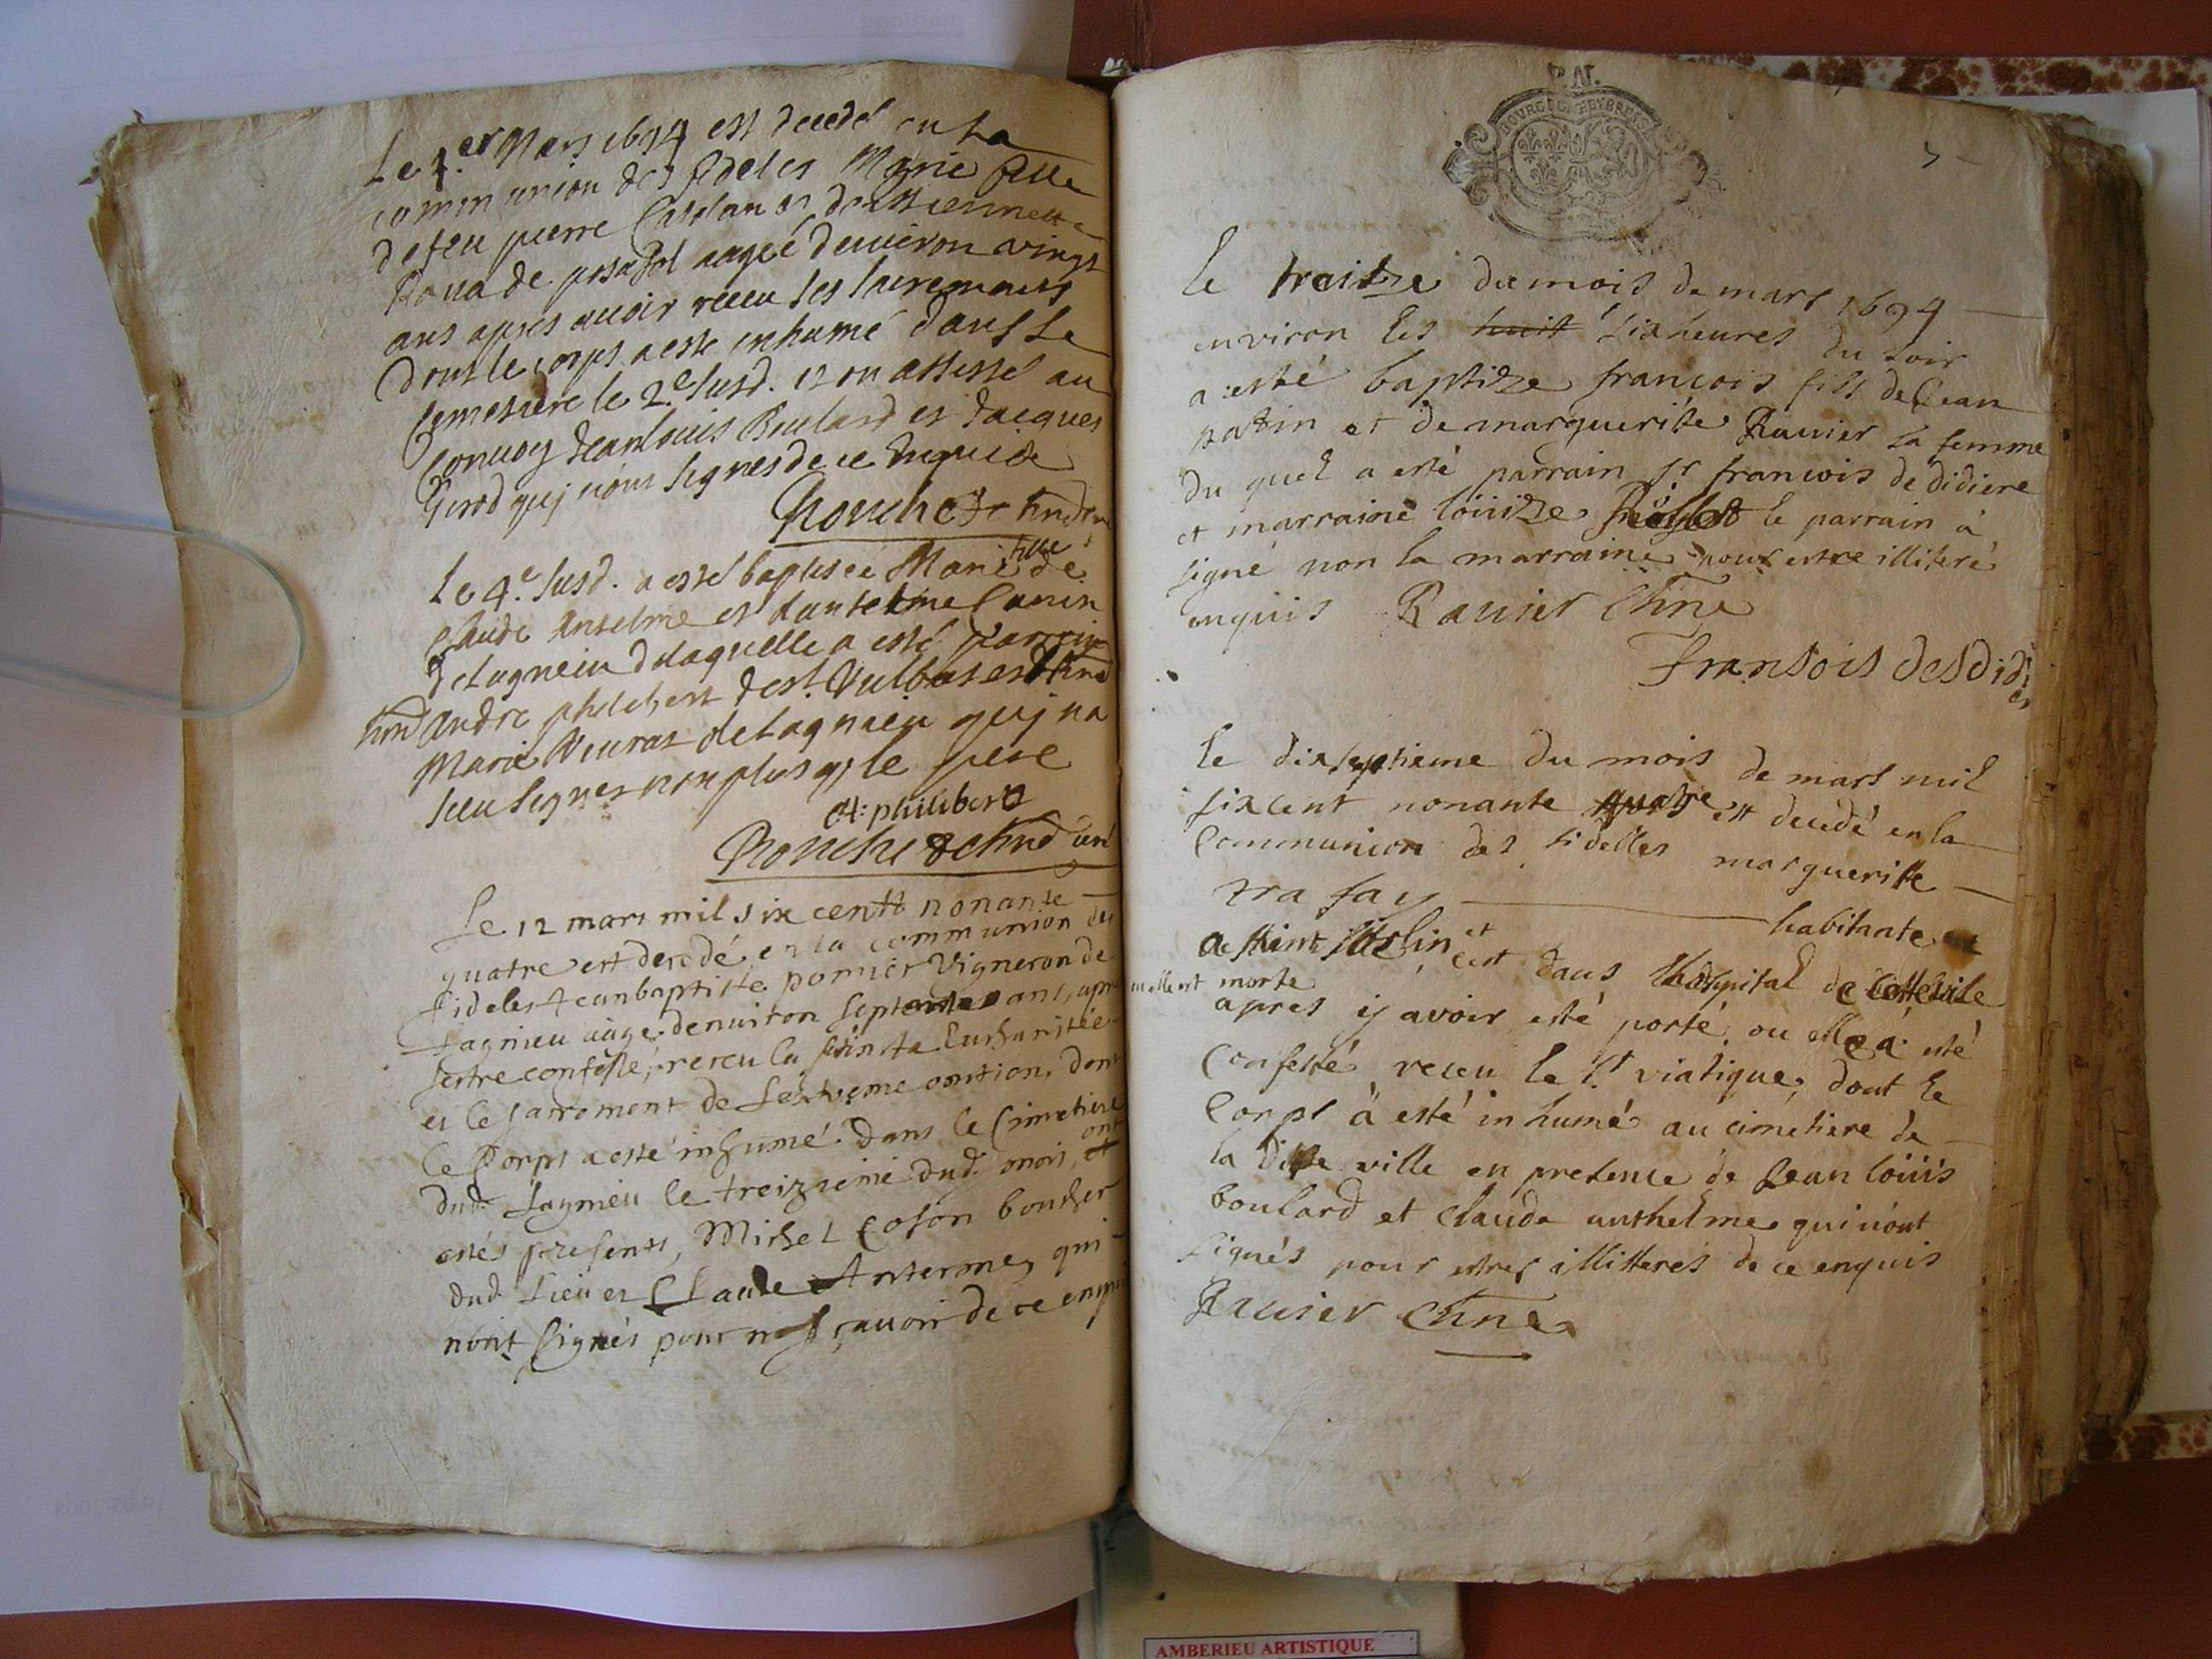 Le 1.er Mars 1694 est decedé en La
communion des fideles Marie fille
de feu pierre Castelan et d'estiennette
Roua de posafol aagée denuiron vingt
ans apres auoir receu les sacremants
dont le corps a este inhumé dans Le
Cemetiere le 2.e Susd. et on assisté au
Conuoy Jean louis Boulard et Jacques
Girod quj n'ont signes de ce Enquis
Le 4.e Susd. a esté baptisée Marie fille de
Claude Anselme et d'antelme Canin
de Lagneiu de laquelle a esté parrain
andre philibert de st. Vulbas et
Marie Neuras de Lagnieu quj na
sceu signer non plus q, le pere
A: philibert
Le 12 mars mil six centt nonante
quatre est decedé en la communion des
fideles Jean baptiste pomier Vigneron de
Lagnieu aage denuiron septente ans, apre
sestre confessé, receu la sainte Eucharistie
et le sacrement de Lextreme onction, dont
le Corps a esté inhumé dans le Cimetiere
dud. Lagnieu le treizieme dud. mois, et ont
estés presents, Michel coson boucher
dud. Lieu et Claude Anterme, qui
n'ont signés pour ne sçauoir de ce enquis
BOURG.E BEY BRESSE
le treitze du mois de mars 1694
environ les huit six heures du soir
a esté baptizé françois fils de Jean
patin et de marguerite Rauier sa femme
du quel a esté parrain sr françois de didiere
et marraine louize le parrain a
signé non la marraine pour estre illiteré
enquis Rauier
fransois desdidi
er
le dixseptieme du mois de mars mil
sixcent nonante quatre est decedé en la
Communion des fidelles margueritte
trafay habitante
a saint Sorlin et est dans lhospital de cette ville
ou elle est morte
apres y avoir esté porté, ou elle a esté
Confessé receu le st viatique, dont le
Corps à esté inhumé au cimetiere de
la ditte ville en presence de Jean loüis
boulard et claude anthelme qui n'ont
signés pour estres illitterés de ce enquis
Rauier
AMBERIEU ARTISTIQUE